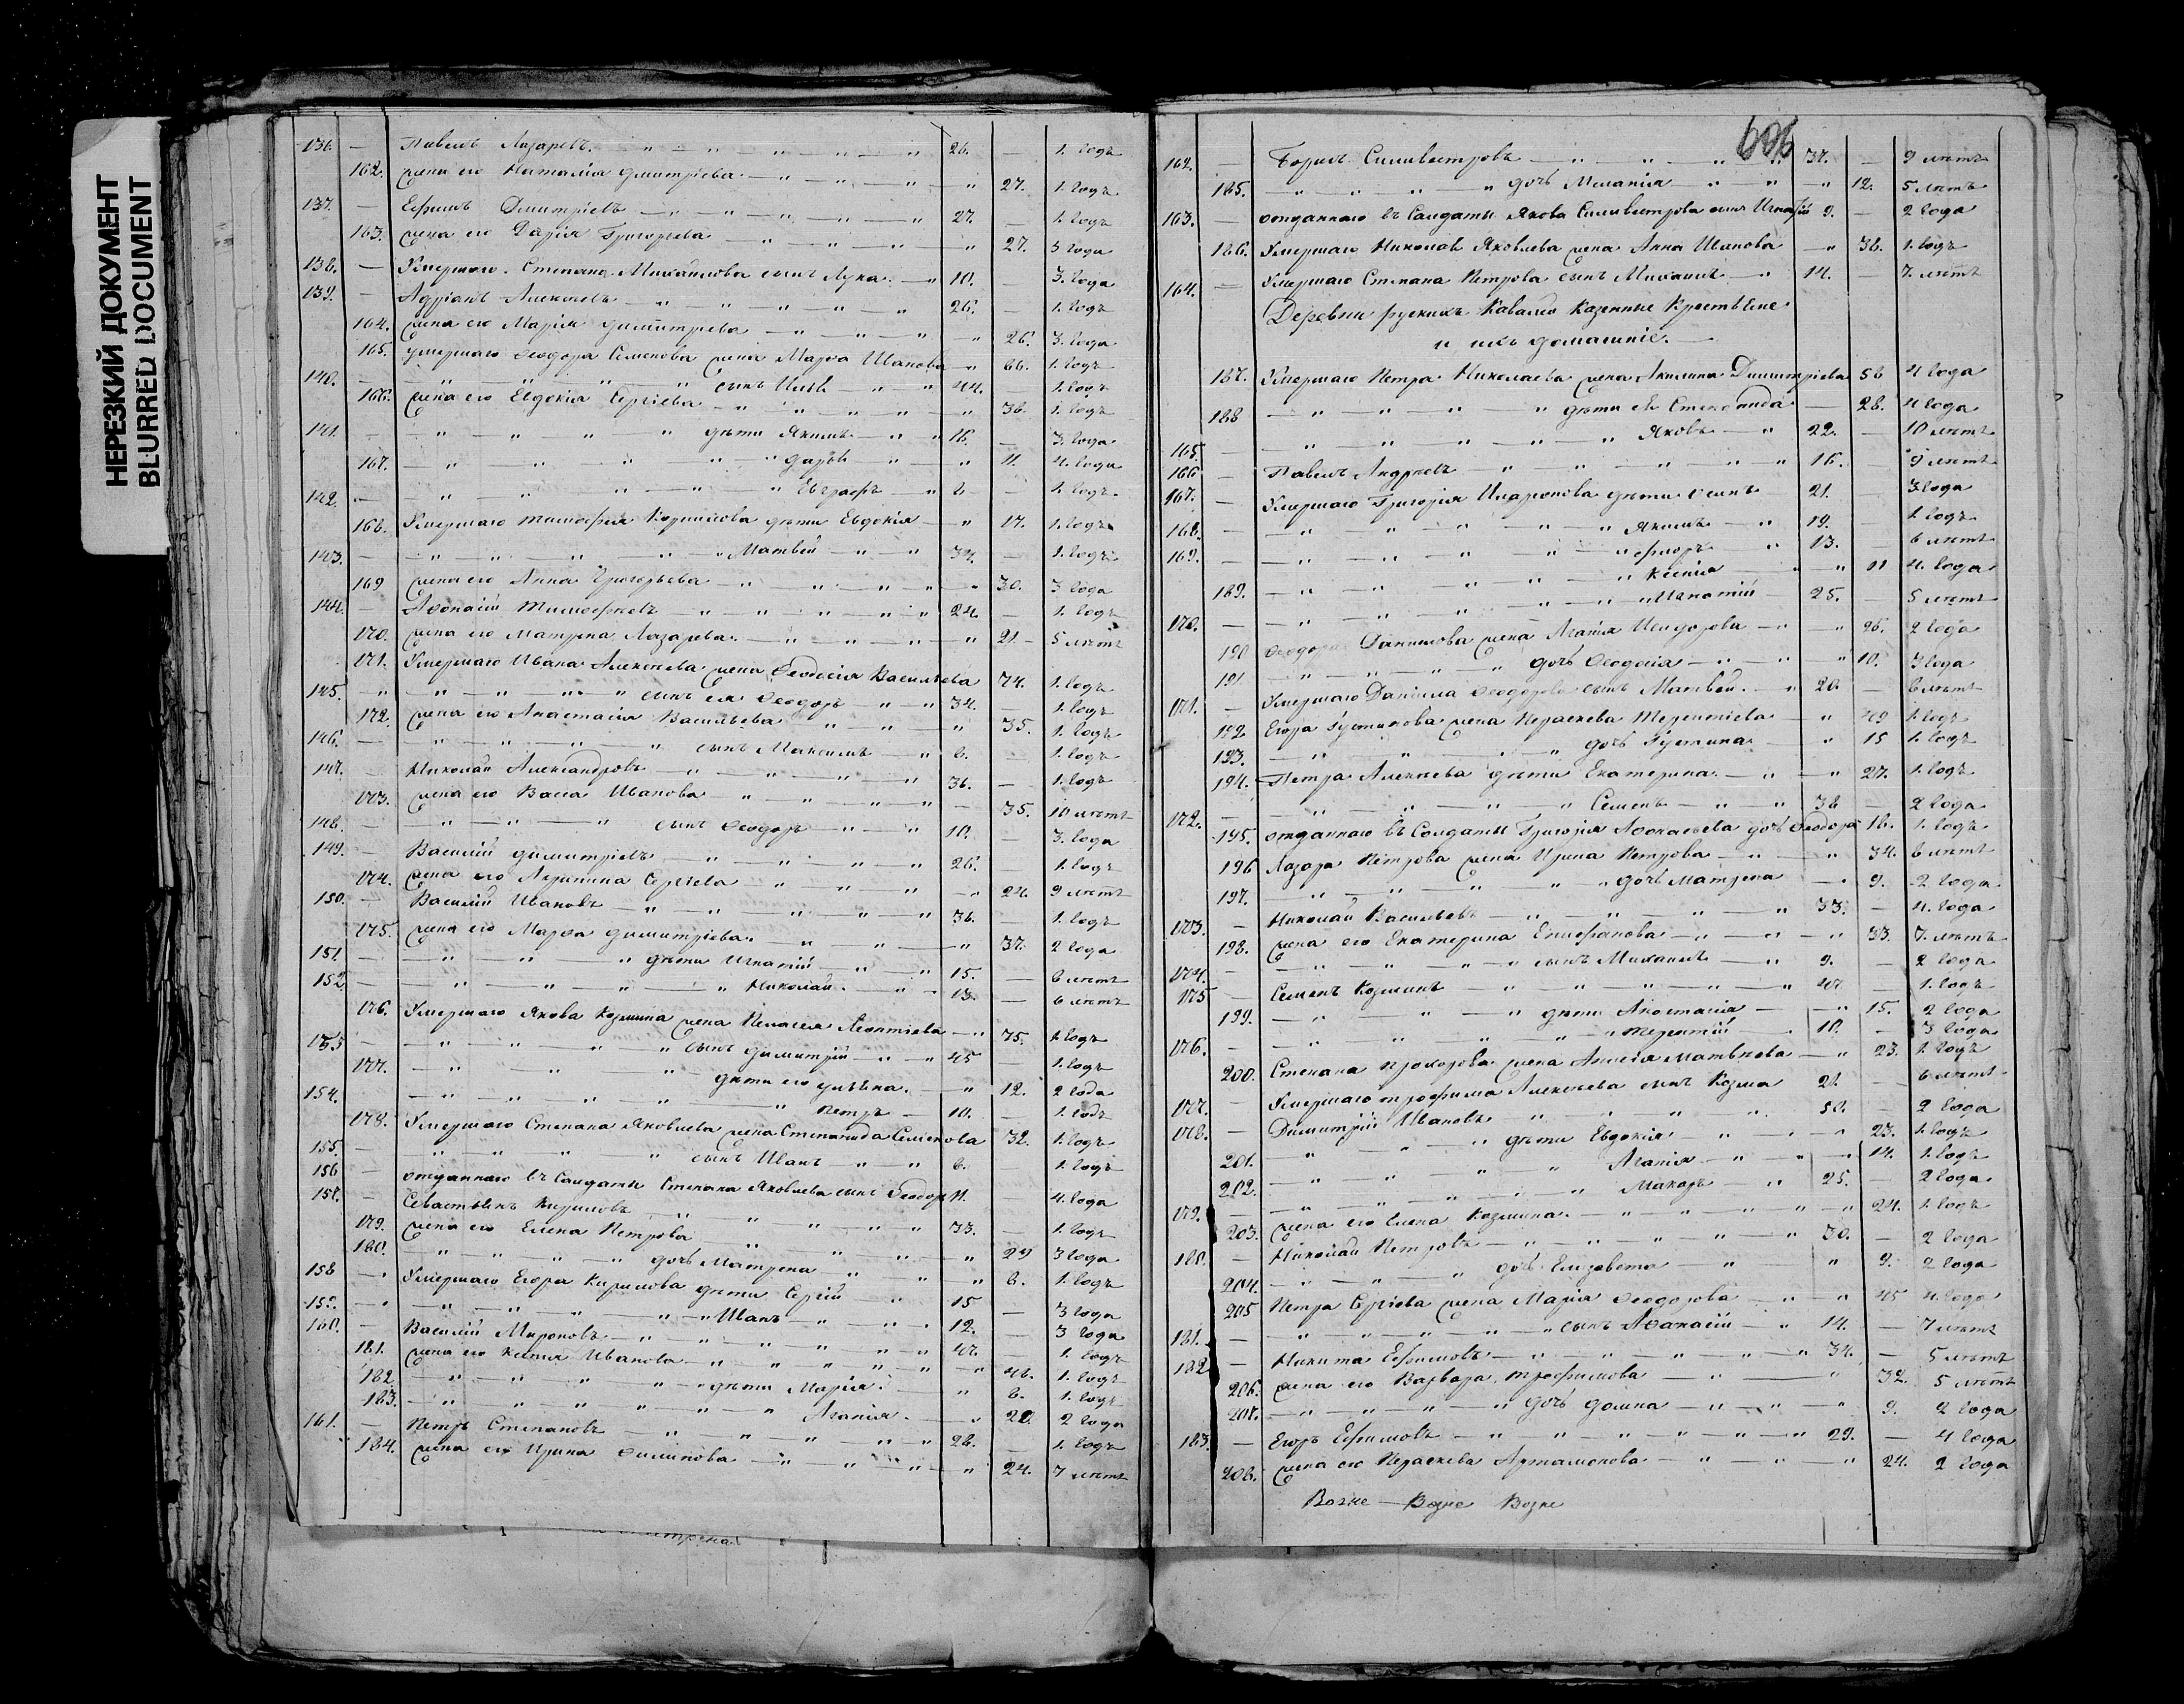 НЕРЕЗКИЙ ДОКУМЕНТ
BLURRED DOCUMENT
136. — Павелъ Лазаревъ. — 26. — 1. годъ
162. жена его Наталія Дмитріева — 27. 1. годъ
137. — Ефимъ Дмитріевъ — 27. — 1. годъ
163. жена его Дарія Григорьева — 27. 3 года
138. — Умершаго Степана Михайлова сынъ Лука. — 10. — 3. года
139. — Адріанъ Алексѣевъ — 26. — 1. годъ
164. жена его Марія Димитрева — 26. 3. года
165. умершаго Ѳеодора Семенова жена Марѳа Иванова — 66. 1. годъ
140. — сынъ — 44. 1. годъ
166. жена его Евдокія Сергіева — 36. 1. годъ
141. — дѣти Якимъ — 16. — 3. года
167. — 11. 4. года
142. — Евграфъ — 1. годъ.
168. Умершаго Тимоѳея дѣти Евдокія — 17. 1. годъ
143. — Матвей — 34. — 1. годъ
169 жена его Анна Григорьева — 30. 3 года
144. — Аѳонасій Тимоѳеевъ — 24. — 1. годъ
170. жена его Матрена Лазарева. — 21 — 5 лѣтъ
171. Умершаго Ивана Алексѣева жена Ѳеодосія Васильева 74. 1. годъ
145. — сынъ ея Ѳеодоръ — 34. — 1. годъ
172. жена его Анастасія Васильева — 35. 1. годъ
146. — сынъ Максимъ — 6. — 1. годъ
147. — Николай Александровъ — 36. — 1. годъ
173. жена его Васса Иванова — 35. 10 лѣтъ
148. — сынъ Ѳеодоръ — 10. — 3. года
149. — Василій Димитріевъ — 26. — 1. годъ
174. жена его Агрипина Сергіева — 24. 9 лѣтъ
150. — Василій Ивановъ — 36. — 1. годъ
175. жена его Марѳа Димитріева. — 37. 2 года
151. — дѣти Игнатій — 15. — 6 лѣтъ
152. — Николай. — 13. — 6 лѣтъ
176. Умершаго Якова Козмина жена Пелагея Леонтіева — 75. 1 годъ
153 — сынъ Димитрій — 45 — 1. годъ
177. — дѣти его — 12. 2 года
154. — Петръ — 10. — 1. годъ
178. Умершаго Степана Яковлева жена Степанида Семенова 32. 1. годъ
155. — сынъ Иванъ — 6. — 1. годъ
156 — отданнаго въ Солдаты Степана Яковлева сынъ Ѳеодоръ 11. — 4. года
157. — Севастьянъ Кириловъ — 33. — 1. годъ
179. жена его Елена Петрова — 29 3 года
180. — дочь Матрена — 6. 1. годъ
158 — Умершаго Егора Кирилова дѣти Сергій — 15 — 3 года
159. — Иванъ — 12. — 3 года
160. — Василій Мироновъ — 47. — 1. годъ
181. жена его Ксенія Иванова — 46. 1. годъ
182. — дѣти Марія — 6. 1. годъ
183. — Агапія — 22. 2 года
161. — Петръ Степановъ — 28. — 1. годъ
184. жена его Ирина Филипова — 24. 7 лѣтъ
606
162. Борисъ Силивестровъ — 37. — 9 лѣтъ
185. — дочь Меланія — 12. 5 лѣтъ
163. — отданнаго въ Солдаты Якова Силивестрова сынъ Игнатій 9. — 2 года
186. Умершаго Николая Яковлева жена Анна Иванова — 36. 1. годъ
164. — Умершаго Степана Петрова сынъ Михаилъ — 14. — 7. лѣтъ
Деревни рускихъ Кавалей Казенные Крестьяне
и ихъ домашніе. —
187. Умершаго Петра Николаева жена Акилина Димитріева 56 4 года
188 — дѣти ея Степанида — 28. 4 года
165. — Яковъ — 22. — 10 лѣтъ
166 — Павелъ Андреевъ — 16. — 9 лѣтъ
167. — Умершаго Григорія Иларіонова дѣти Осипъ 21. — 3 года
168. — Якимъ — 19. — 1. годъ
169. — Флоръ — 13. — 6 лѣтъ
189. — Ксенія — 11 4. года
170. — Игнатій — 25. — 5 лѣтъ
190 Ѳеодора Данилова жена Агапія Исидорова — 36. 2 года
191 — дочь Ѳеодосія — 10. 3 года
171. — Умершаго Даніила Ѳеодорова сынъ Матвѣй. — 20 — 6 лѣтъ
192 Егора Густинова жена Параскева Терентіева — 49 1. годъ
193. — дочь Густина — 15 1. годъ
194. Петра Алексѣева дѣти Екатерина. — 27. 1. годъ
172. — Семенъ — 38 — 2 года
195. отданнаго въ Солдаты Григорія Аѳонасьева дочь Ѳеодора 16. 1. годъ
196 Лазара Петрова жена Ирина Петрова — 34. 6 лѣтъ
197. — дочь Матрена — 9. 2 года
173. — Николай Васильевъ — 33. — 4. года
198. жена его Екатерина Епифанова — 33. 7. лѣтъ
174. — сынъ Михаилъ — 9. — 2 года
175 — Семенъ Козминъ — 47. — 1. годъ
199. — дѣти Анастасія — 15. 2 года
176. — Терентій — 10. — 3 года
200. Степана Прохорова жена Анисія Матвѣева — 23. 1. годъ
177. — Умершаго Трофима Алексѣева сынъ Козма 21. — 6 лѣтъ
178. — Димитрій Ивановъ — 50. — 2 года
201. — дѣти Евдокія — 23. 1. годъ
202. — Агапія — 14. 1. годъ
179. — Макаръ — 25. — 2 года
203. жена его Елена Козмина. — 24. 1. годъ
180. — Николай Петровъ — 30. — 2 года
204. — дочь Елизавета — 9. 2 года
205 Петра Сергіева жена Марія Ѳеодорова — 45 4. года
181. — сынъ Аѳанасій — 14. — 7 лѣтъ
182 — Никита Ефимовъ — 34. — 5 лѣтъ
206. жена его Варвара Трофимова — 32. 5 лѣтъ
207. — дочь Домна — 9. 2 года
183. — Егоръ Ефимовъ — 29. — 4 года
208. жена его Параскева Артамонова — 24. 2 года